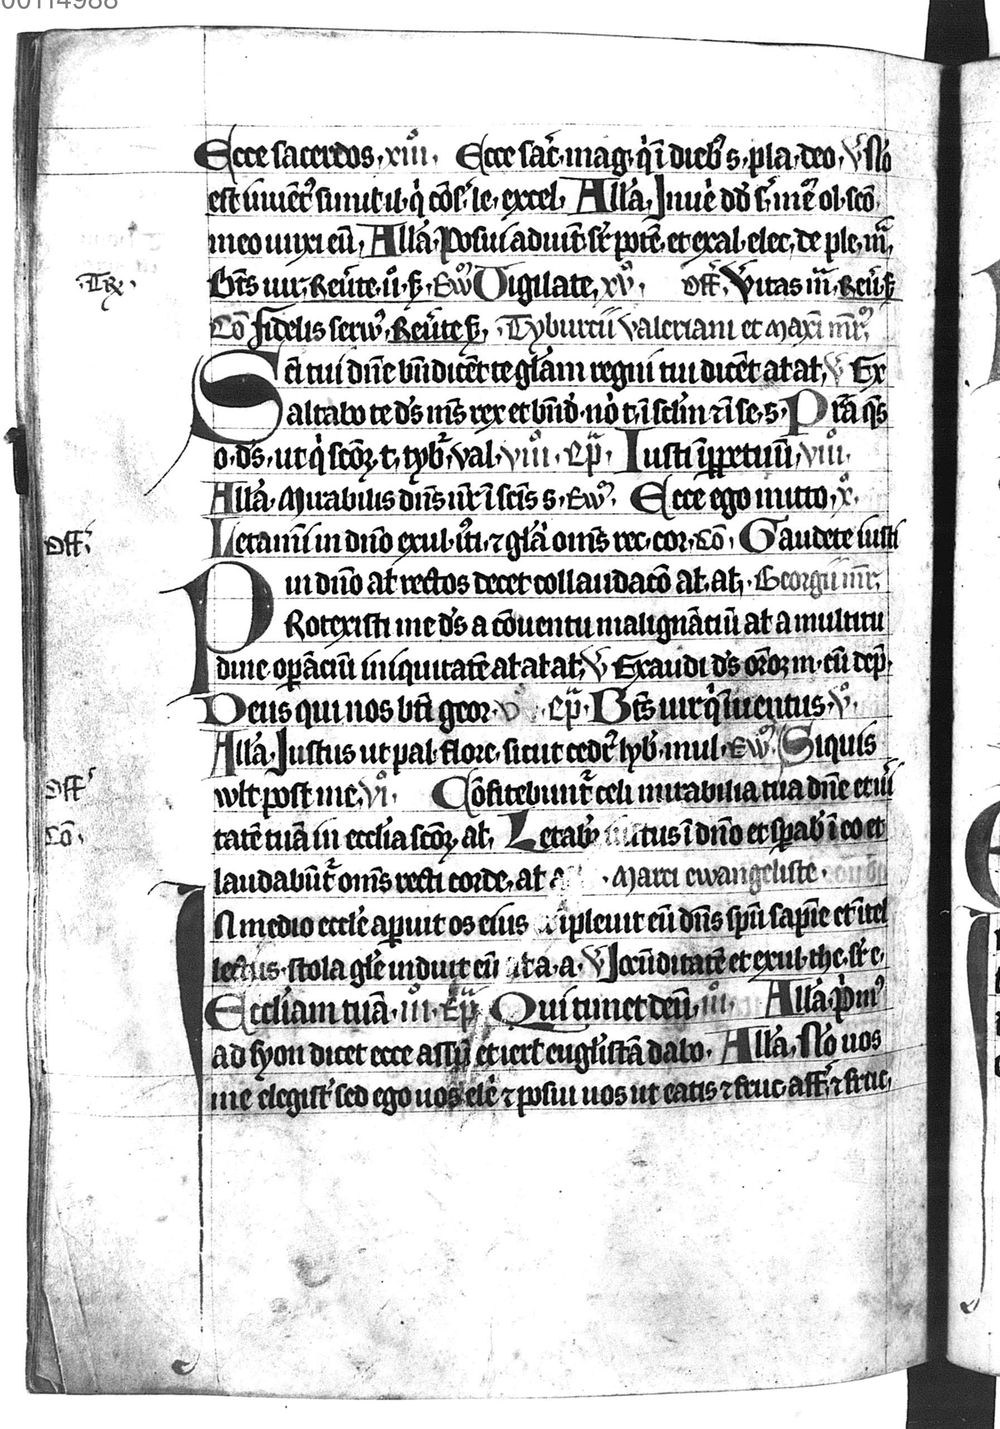 00114988
Ecce sacerdos, xiiiº. Ecce sac̄. mag. qͥ ī diebꝰ s. pla. deo, ꝟ Nō
est inuētꝰ similꝭ il. qͥ cōs. le. excel, All̄a, Inuē dd̄ s. mē ol. sc̄o
meo unxi eū, All̄a, Posui adiut̄. sr̄. potē. et exal. elec. de ple. m̄,
·Tx̄·
Bt̄s uir, Reūte, Ew̄ Uigilate, xvº. Off̄. Veritas m̄. Reūte
Cō Fidelis seruꝰ, Reūte, Tyburcii valeriani et maxī mr̄ꝝ
Sc̄i tui dn̄e bn̄dicēt te gl̄am regni tui dicēt al al, ꝟ Ex
altabo te ds̄ ms̄ rex et bn̄d. nō. t. ī sc̄lm̄ ⁊ ī se. s. Prā qs̄
o. ds̄, ut qͥ sc̄oꝝ. t. tyb, val. viiiº. Ep̄. Iusti īꝑpetuū, viiiº.
All̄a, Mirabilis dn̄s nr̄ ī sc̄is s. Ew̄. Ecce ego mitto, xº.
Off̄.
Letamī in dn̄o exul. iti. ⁊ gl̄a om̄s rec. cor. Cō. Gaudete iusti
in dn̄o al rectos decet collaudacō al. al, Georgii mr̄.
PRotexisti me ds̄ a cōuentu malignāciū al a multitu
dine oꝑāciū iniquitatē al al al, ꝟ Exaudi ds̄ orōꝫ m. cū dep̄.
Deus qui nos bt̄i geor. vº. Ep̄. Bt̄s uir qͥ īuentus, vº.
All̄a, Iustus ut pal. flore, sicut cedꝰ lyb. mul. Ew̄. Siquis
Off̄
wlt post me, viº. Cōfitebunt̄ celi mirabilia tua dn̄e et ū
Cō.
tatē tuā in eccl̄ia sc̄oꝝ, al, Letabꝰ iustus ī dn̄o et sꝑabꝰ ī eo et
laudabūt̄ om̄s recti corde, al a · Marci ewangeliste ·
IN medio eccl̄e aperuit os eius īpleuit eū dn̄s sp̄u sapīe et ītel
lectus, stola gl̄e induit eū al a. a. ꝟ Iocūditatē et exul. the. sr̄ e,
Eccl̄iam tuā, iiiº. Ep̄. Qui timet deū, iiiº. All̄a, Pͥmꝰ
ad syon dicet ecce assū et ierl̄ eugl̄istā dabo. All̄a, Nō uos
me elegist̄ sed ego uos elē ⁊ posui uos ut eatis ⁊ fruc. aff̄. ⁊ fruc,